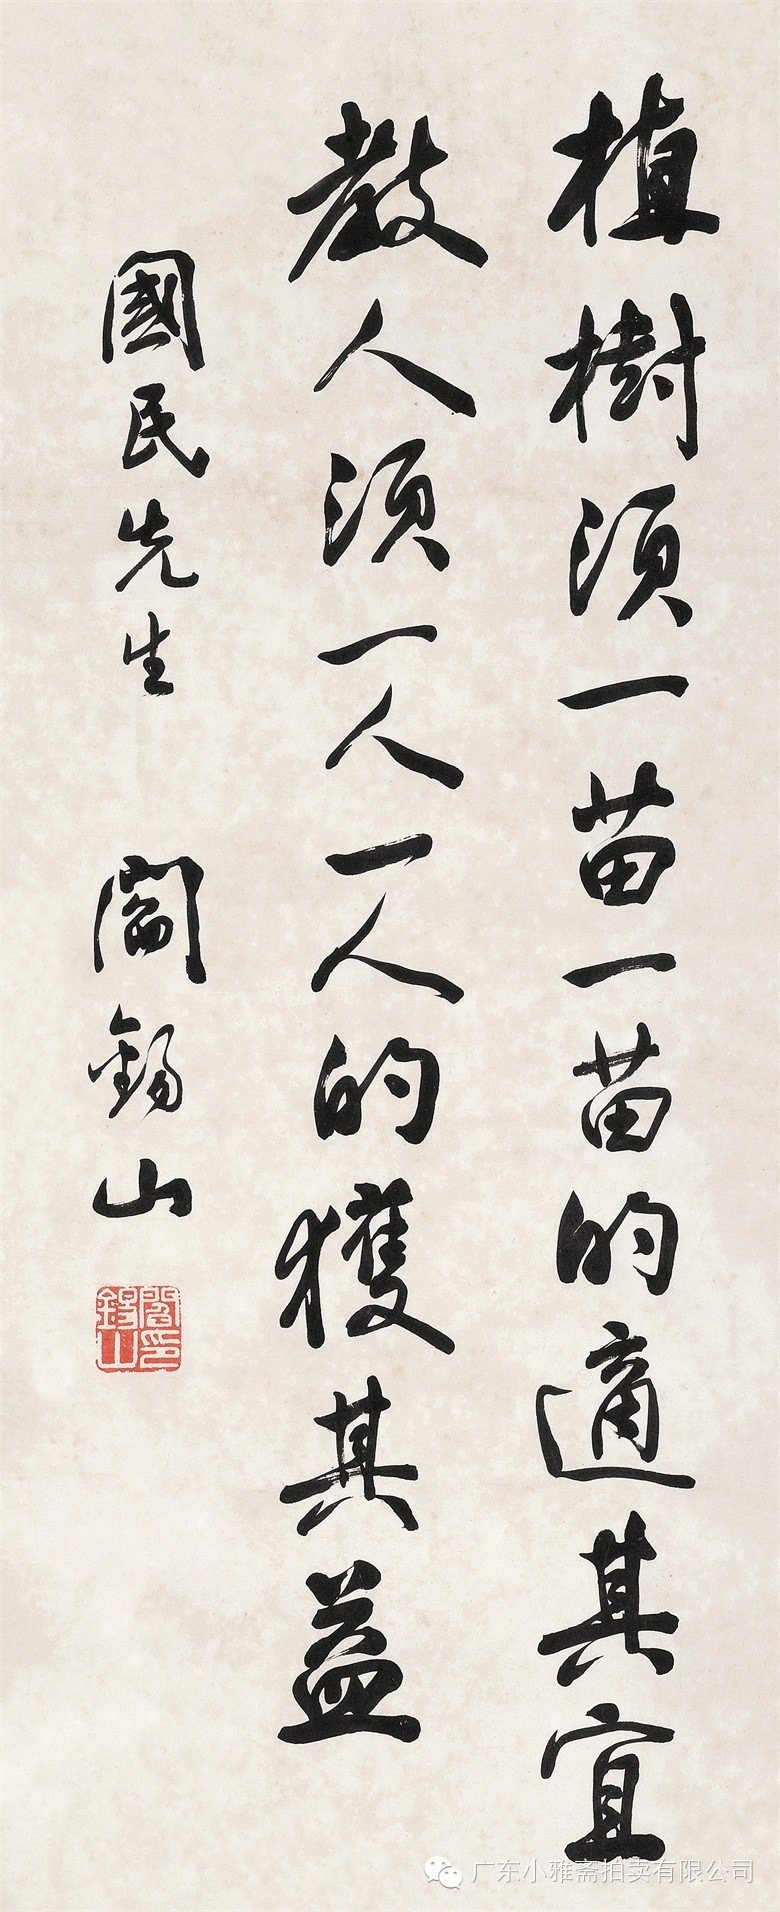 植樹須一苗一苗的適其宜
教人須一人一人的獲其益
國民先生 閻錫山
閻錫山印
广东小雅斋拍卖有限公司